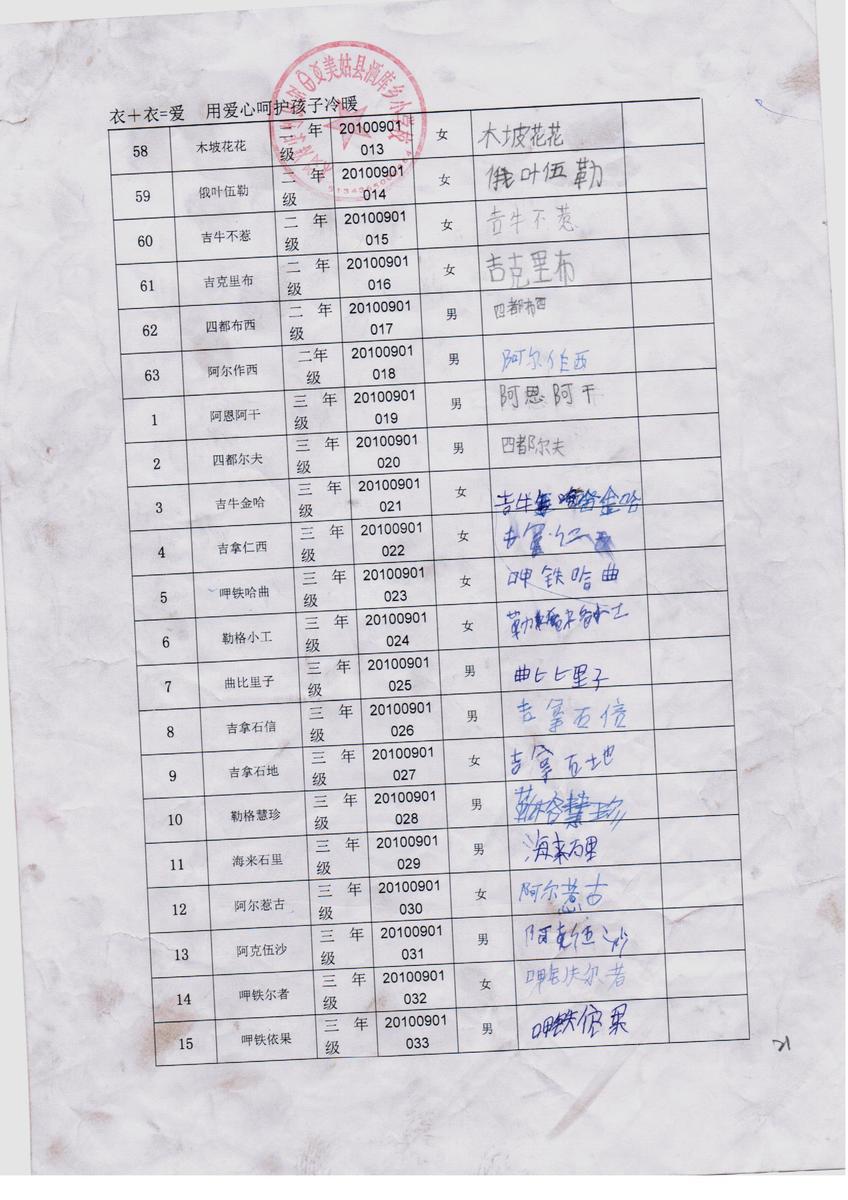 衣＋衣=爱 用爱心呵护孩子冷暖
美姑县洒库乡小学校
58 木坡花花 二年级 20100901013 女 木坡花花
59 俄叶伍勒 二年级 20100901014 女 俄叶伍勒
60 吉牛不惹 二年级 20100901015 女 吉牛不惹
61 吉克里布 二年级 20100901016 女 吉克里布
62 四都布西 二年级 20100901017 男 四都布西
63 阿尔作西 二年级 20100901018 男 阿尔作西
1 阿恩阿干 三年级 20100901019 男 阿恩阿干
2 四都尔夫 三年级 20100901020 男 四都尔夫
3 吉牛金哈 三年级 20100901021 女 吉牛金哈
4 吉拿仁西 三年级 20100901022 女
5 呷铁哈曲 三年级 20100901023 女 呷铁哈曲
6 勒格小工 三年级 20100901024 女 勒
7 曲比里子 三年级 20100901025 男 曲比里子
8 吉拿石信 三年级 20100901026 男 吉拿石信
9 吉拿石地 三年级 20100901027 女 吉拿石地
10 勒格慧珍 三年级 20100901028 男 勒格慧珍
11 海来石里 三年级 20100901029 男 海来石里
12 阿尔惹古 三年级 20100901030 女 阿尔惹古
13 阿克伍沙 三年级 20100901031 男 阿克伍沙
14 呷铁尔者 三年级 20100901032 女 呷铁尔者
15 呷铁依果 三年级 20100901033 男 呷铁依果
21